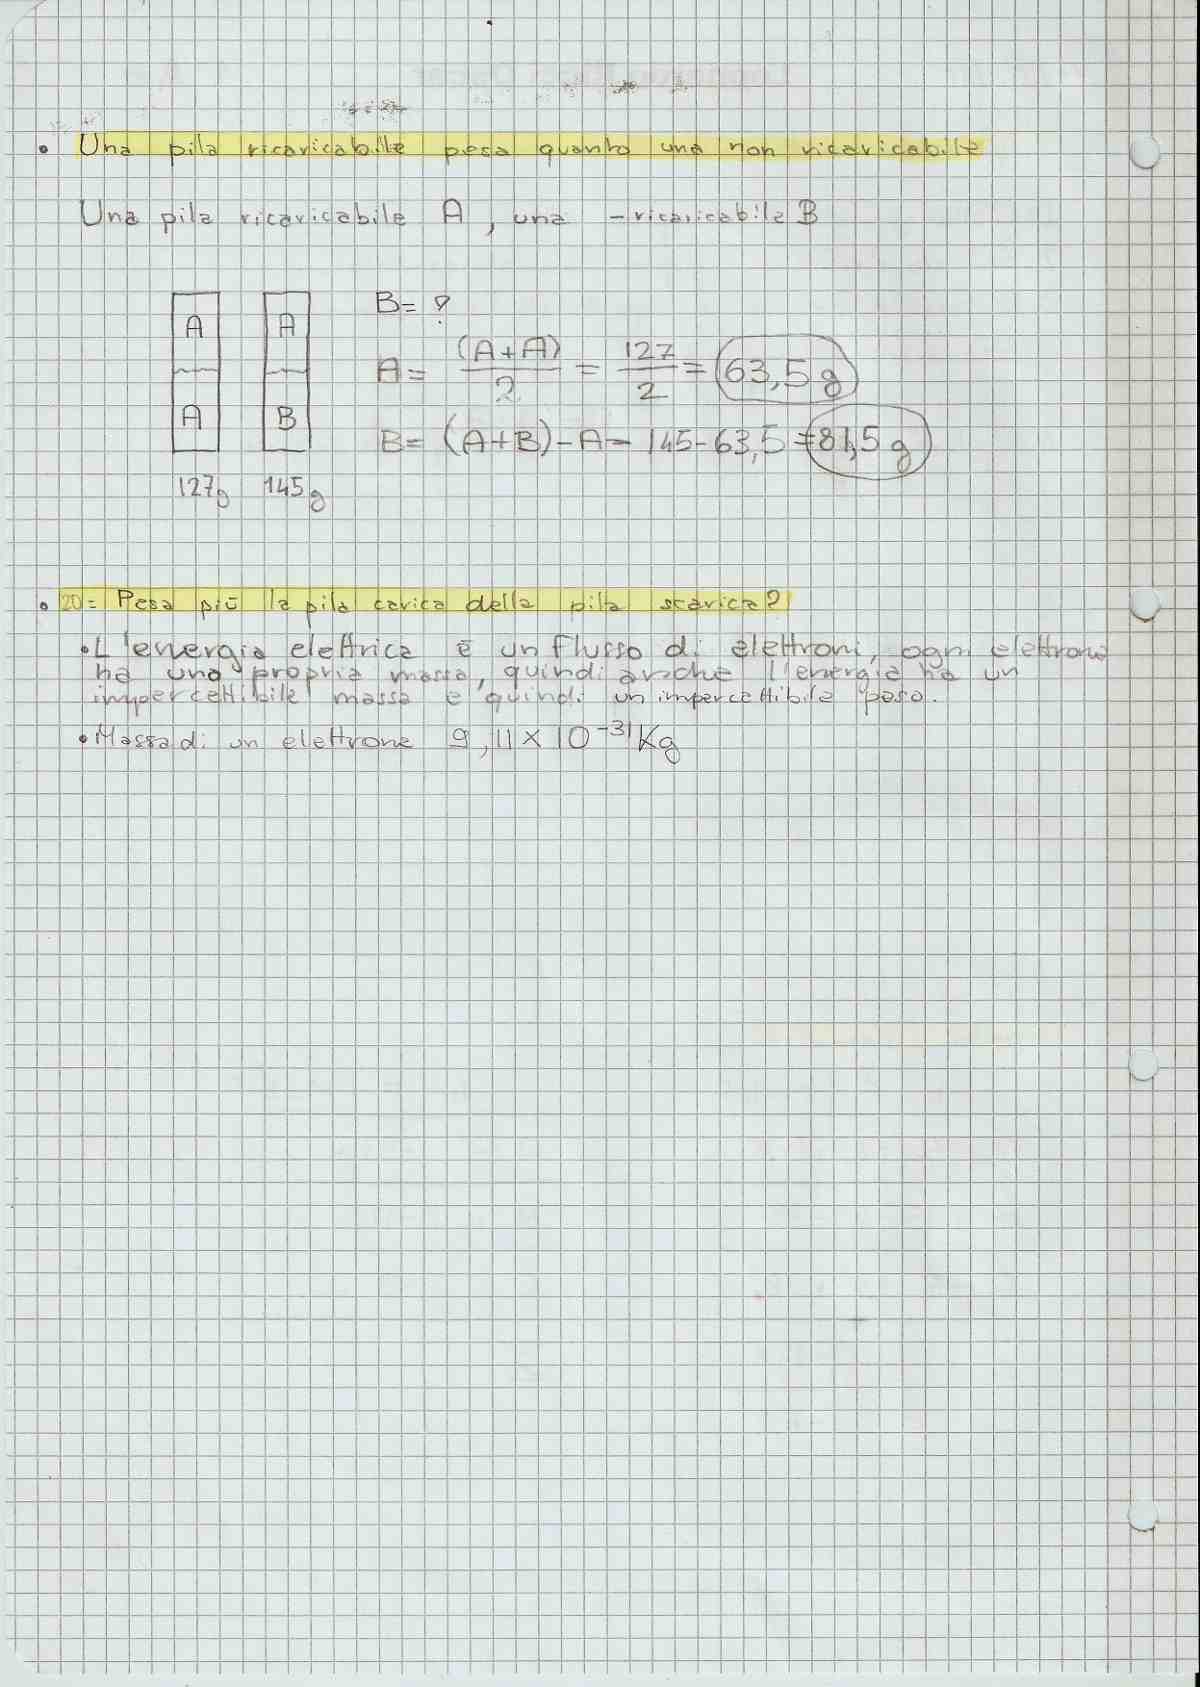 • Una pila ricaricabile pesa quanto una non ricaricabile
Una pila ricaricabile A, una -ricaricabile B
A A B= ?
A= (A+A)/2 = 127/2 = 63,5 g
A B B= (A+B)-A= 145-63,5=81,5 g
127g 145g
• 20= Pesa più la pila carica della pila scarica?
•L'energia elettrica è un flusso di elettroni, ogni elettrone
ha una propria massa, quindi anche l'energia ha un
impercettibile massa e quindi un impercettibile peso.
•Massa di un elettrone 9,11×10⁻³¹Kg